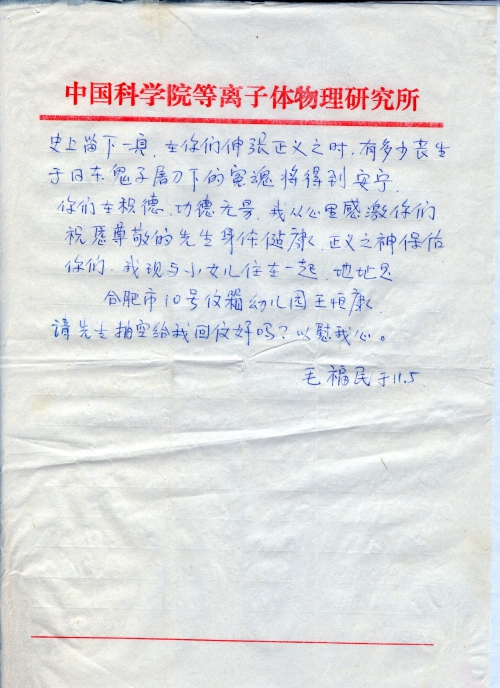 中国科学院等离子体物理研究所
史上留下一页。在你们伸张正义之时,有多少丧生
于日本鬼子屠刀下的冤魂将得到安宁。
你们在积德,功德无量。我从心里感激你们
祝愿尊敬的先生身体健康。正义之神保佑
你们。我现与小女儿住在一起,地址是
合肥市10号仪箱幼儿园王恒康。
请先生抽空给我回仪好吗?以慰我心。
毛福民于11.5.